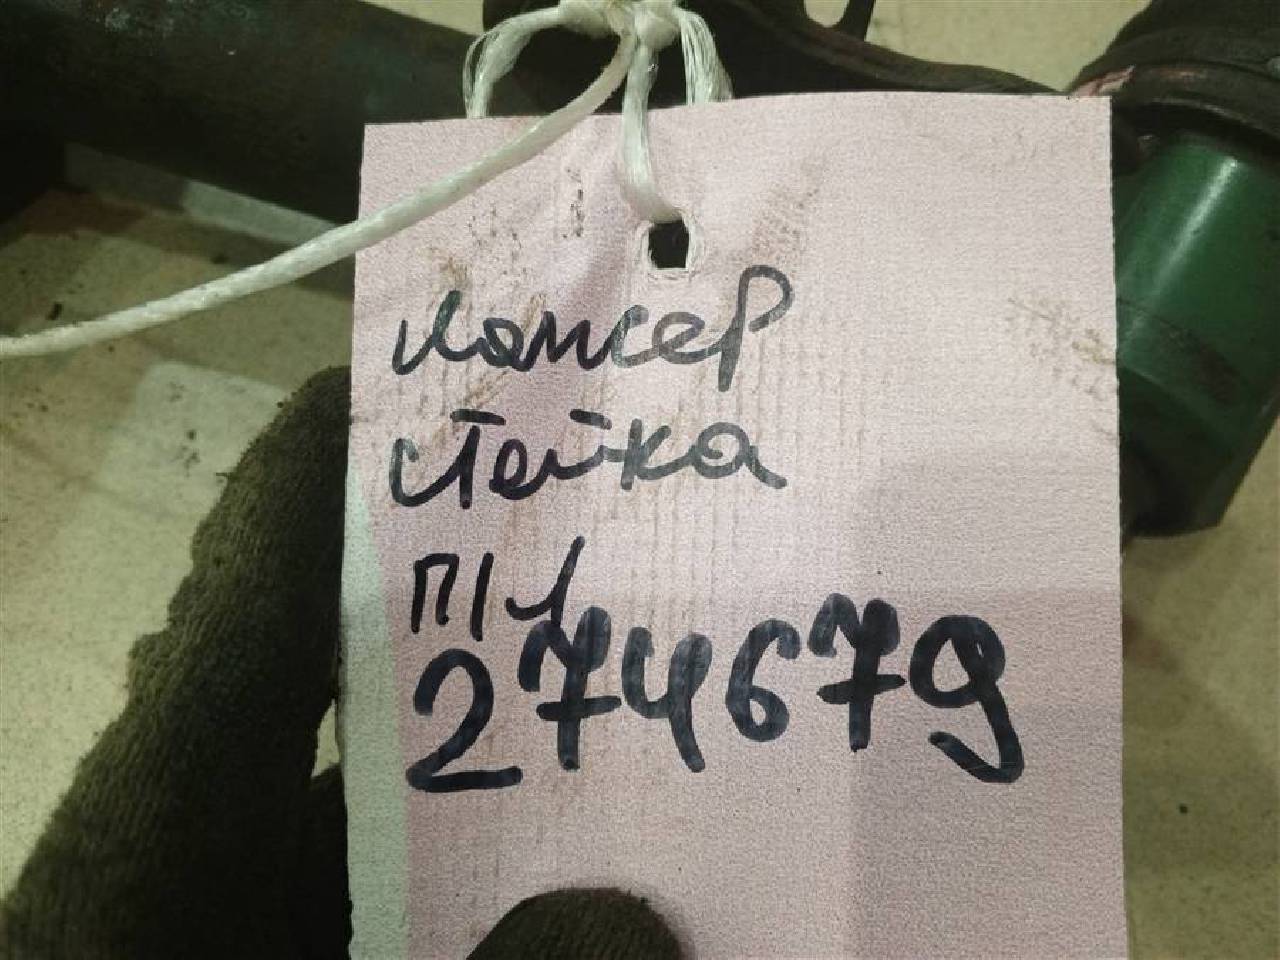 Лансер
стойка
П/Л
274679